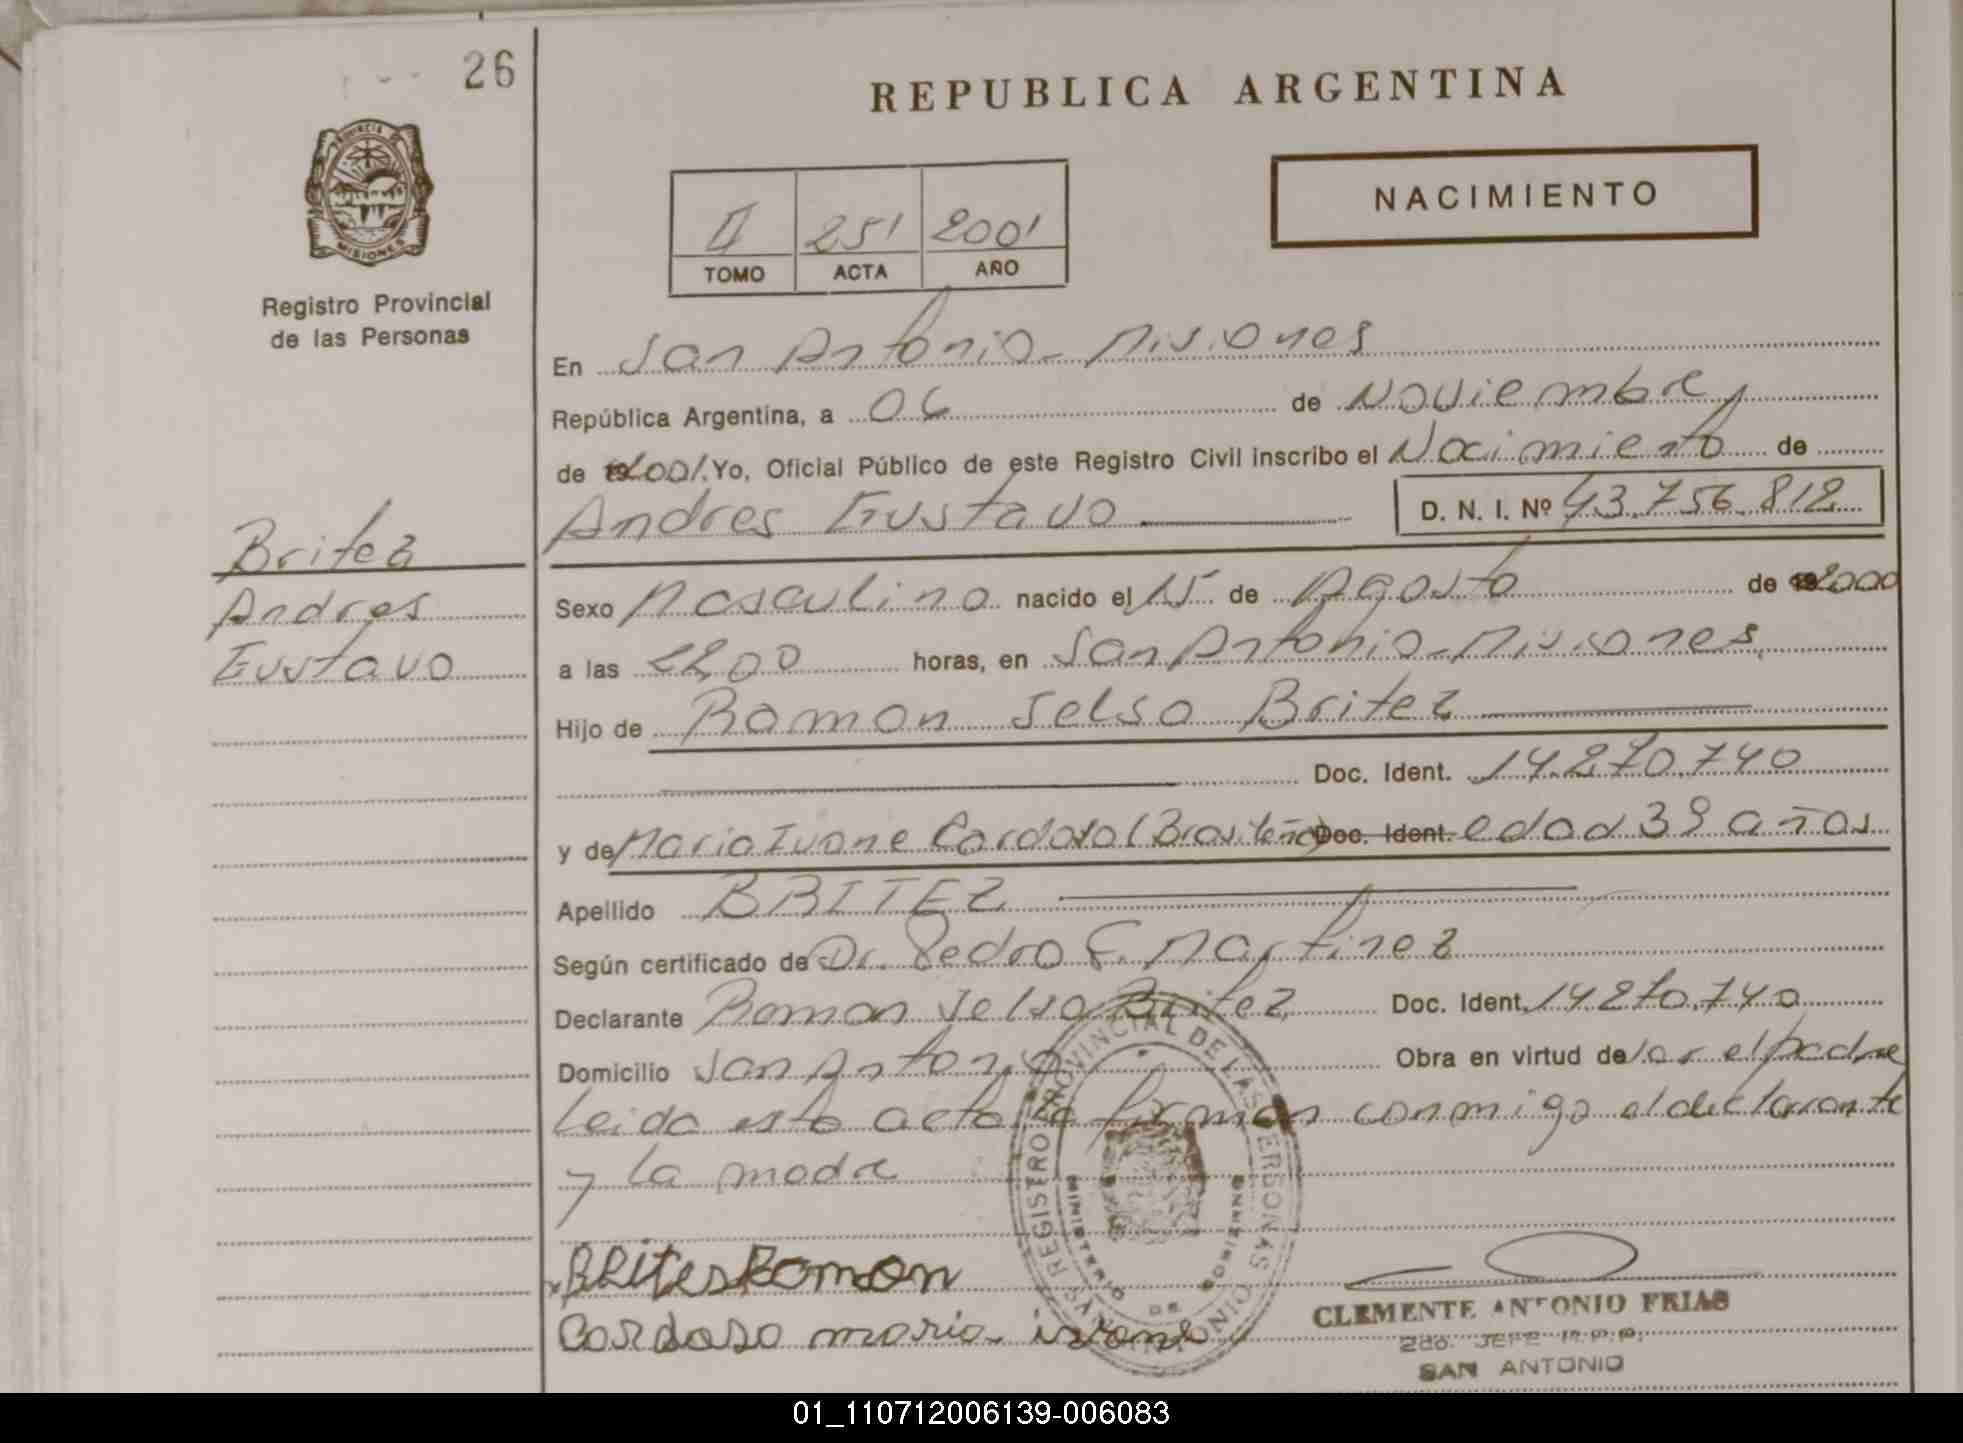 26
REPUBLICA ARGENTINA
PROVINCIA DE
MISIONES
Registro Provincial
de las Personas
II 251 2001
TOMO ACTA AÑO
NACIMIENTO
En San Antonio - Misiones
República Argentina, a 06 de Noviembre
de 2001. Yo, Oficial Público de este Registro Civil inscribo el Nacimiento de
Andres Gustavo D. N. I. Nº 43.756.812
Britez
Andres
Gustavo
Sexo Masculino nacido el 15 de Agosto de 2000
a las 22,00 horas, en San Antonio - Misiones,
Hijo de Ramon Selso Britez
Doc. Ident. 14.270.740
y de Maria Ivone Cardoso (Brasileña) Doc. Ident. edad 39 años
Apellido BRITEZ
Según certificado de Dr. Pedro F. Martinez
Declarante Ramon Selso Britez Doc. Ident. 14270.740
Domicilio San Antonio Obra en virtud de ser el padre
Leida esta acta, la firman conmigo el declarante
y la madre
REGISTRO PROVINCIAL DE LAS PERSONAS
MINISTERIO DE GOBIERNO
BRites Ramon
Cardoso maria ivone
CLEMENTE ANTONIO FRIAS
2do. JEFE R.P.P.
SAN ANTONIO
01_110712006139-006083